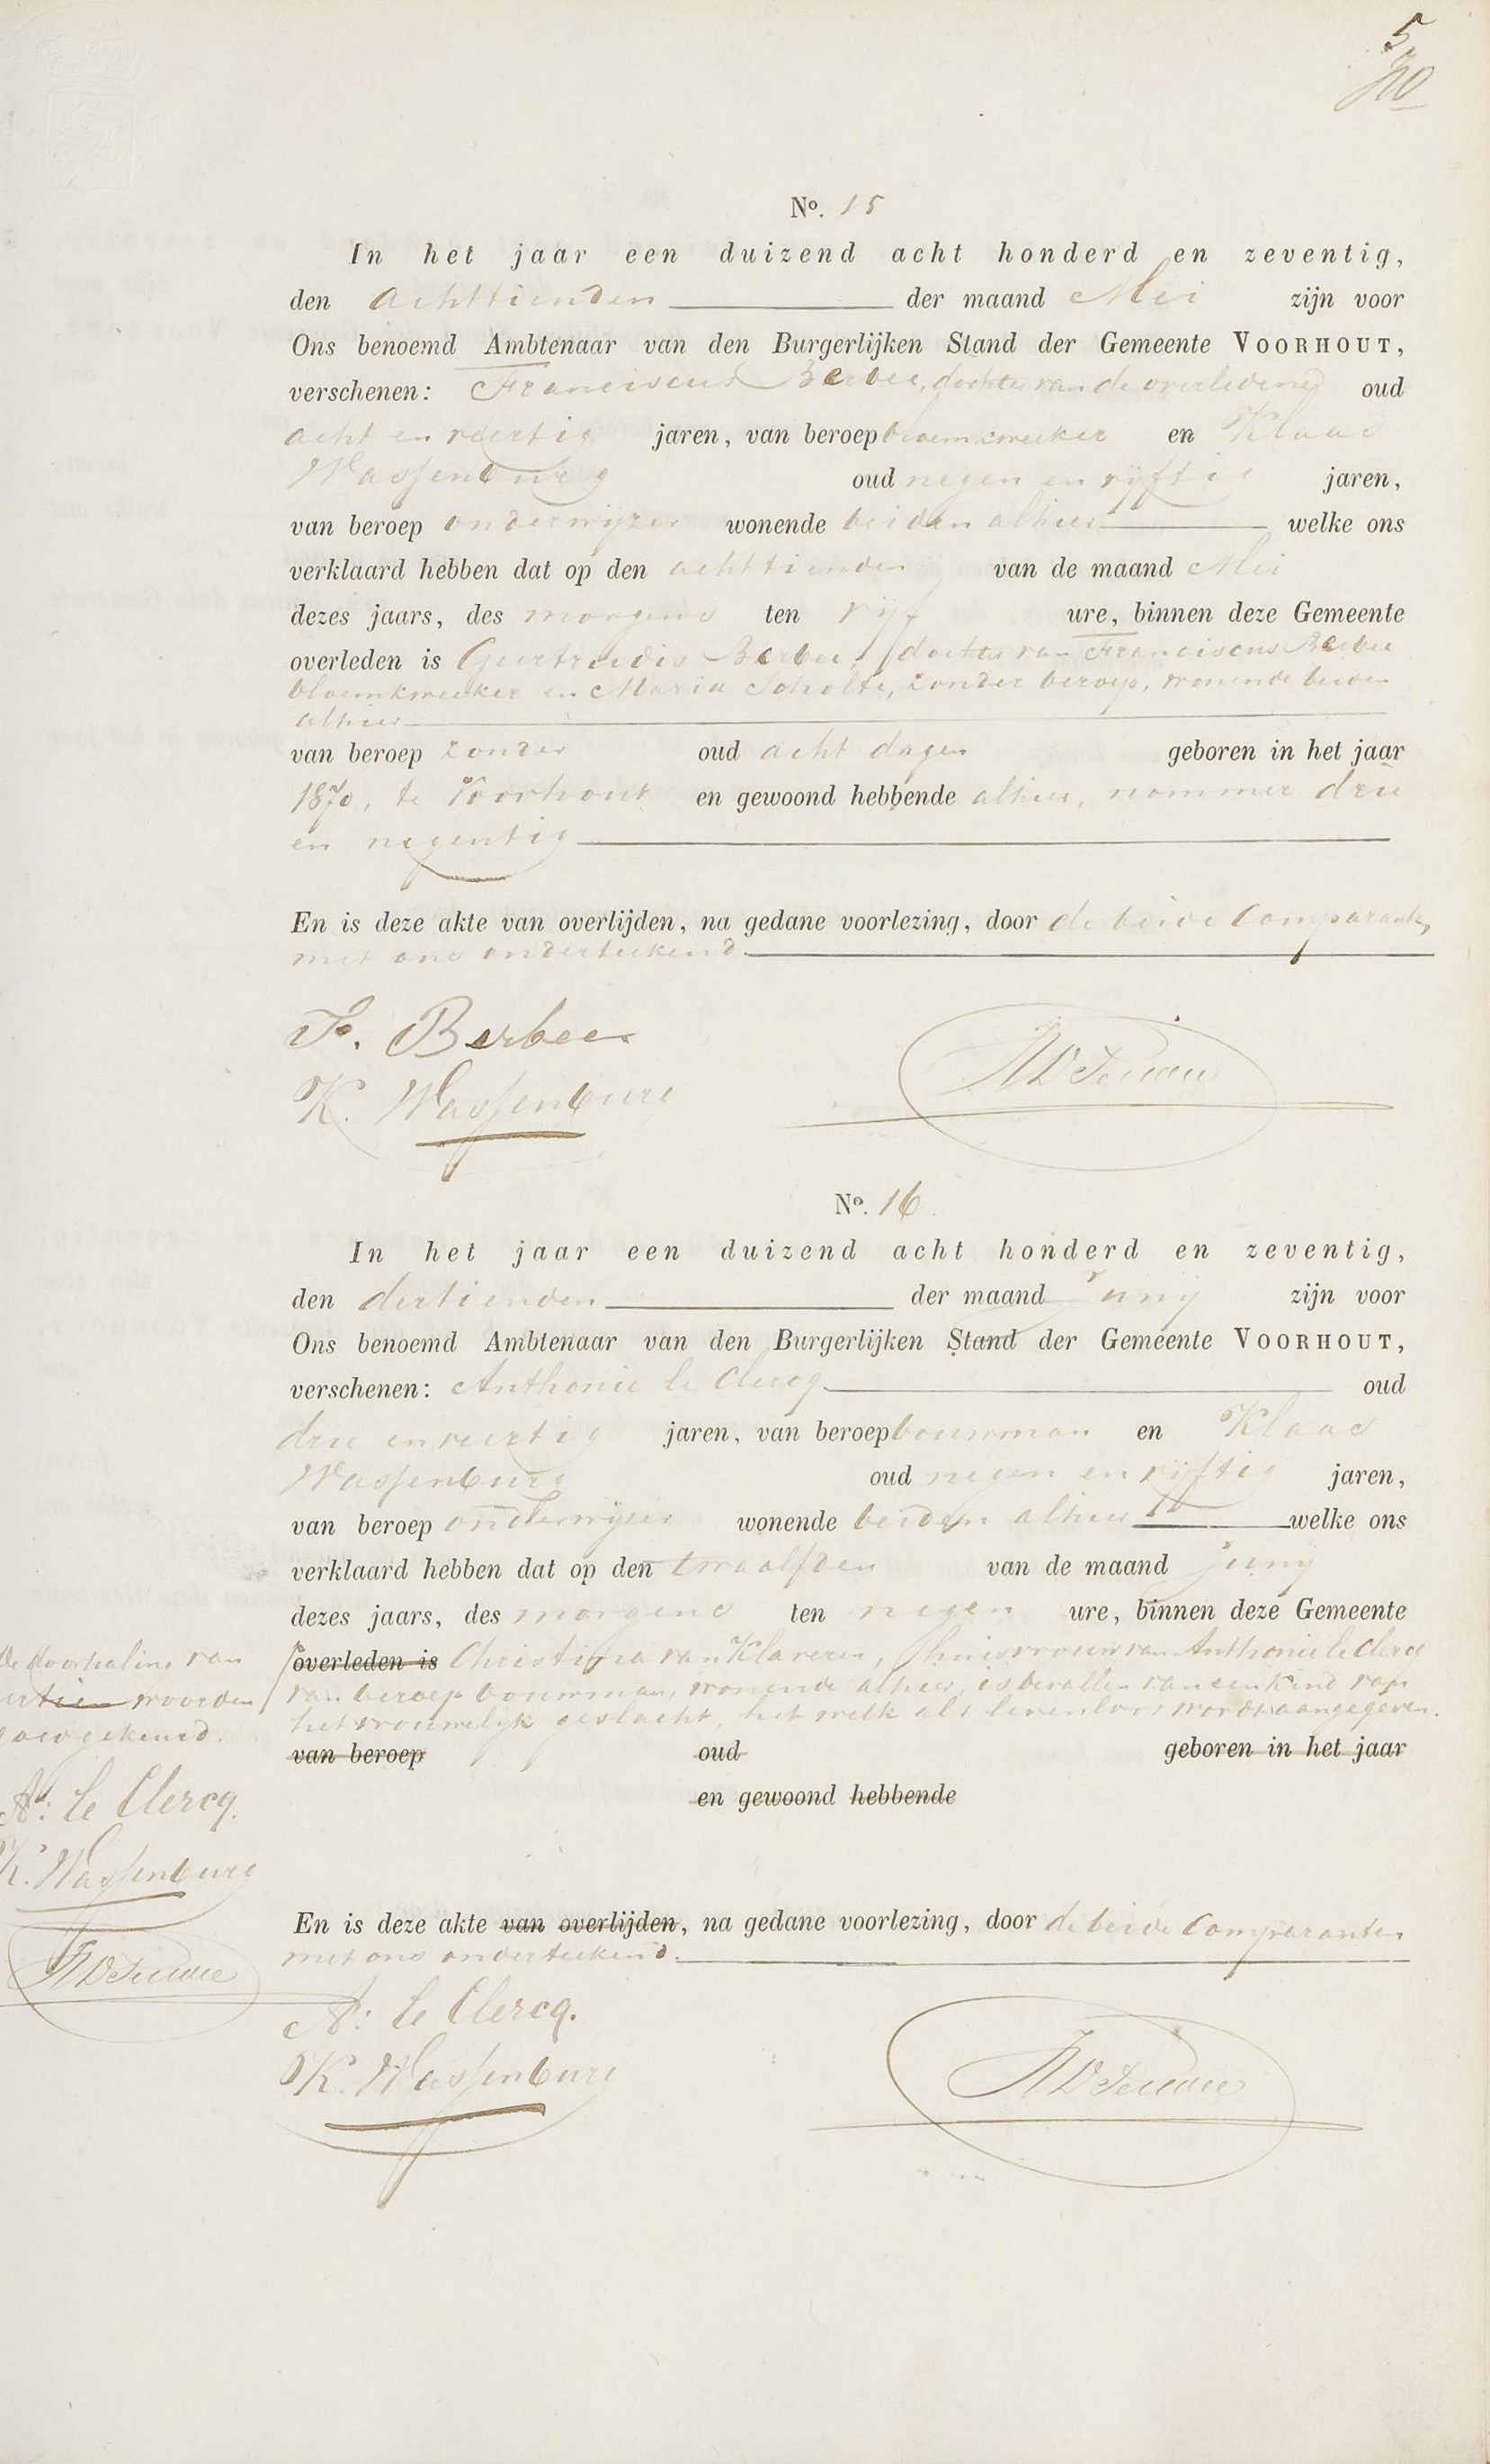 5
No. 15
In het jaar een duizend acht honderd en zeventig,
den achttienden der maand Mei zijn voor
Ons benoemd Ambtenaar van den Burgerlijken Stand der Gemeente VOORHOUT,
verschenen: Franciscus Berbee, dochter van de overledene oud
acht en veertig jaren, van beroep bloemkweeker en Klaas
Wassenburg oud negen en vijftig jaren,
van beroep onderwijzer wonende beiden alhier welke ons
verklaard hebben dat op den achttienden van de maand Mei
dezes jaars, des morgens ten vijf ure, binnen deze Gemeente
overleden is Geertruidis Berbee, dochter van Franciscus Berbee
bloemkweeker en Maria Scholte, zonder beroep, wonende beiden
alhier
van beroep zonder oud acht dagen geboren in het jaar
1870, te Voorhout en gewoond hebbende alhier, nommer drie
en negentig
En is deze akte van overlijden, na gedane voorlezing, door de beide Comparanten,
met ons onderteekend.
F. Berbee
K. Wassenburg
No. 16.
In het jaar een duizend acht honderd en zeventig,
den dertienden der maand Junij zijn voor
Ons benoemd Ambtenaar van den Burgerlijken Stand der Gemeente VOORHOUT,
verschenen: Anthonie le Clercq oud
drie en veertig jaren, van beroep bouwman en Klaas
Wassenburg oud negen en vijftig jaren,
van beroep onderwijzer wonende beiden alhier welke ons
verklaard hebben dat op den twaalfden van de maand Junij
dezes jaars, des morgens ten negen ure, binnen deze Gemeente
overleden is Christina van Klaveren, huisvrouw van Anthonie le Clercq
van beroep bouwman, wonende alhier, is bevallen van een kind van
het vrouwelijk geslacht, het welk als levenloos wordt aangegeven.
van beroep oud geboren in het jaar
en gewoond hebbende
De doorhaling van
woorden
goedgekeurd.
A: le Clercq.
K. Wassenburg
En is deze akte van overlijden, na gedane voorlezing, door de beide Comparanten
met ons onderteekend.
A: le Clercq.
K. Wassenburg